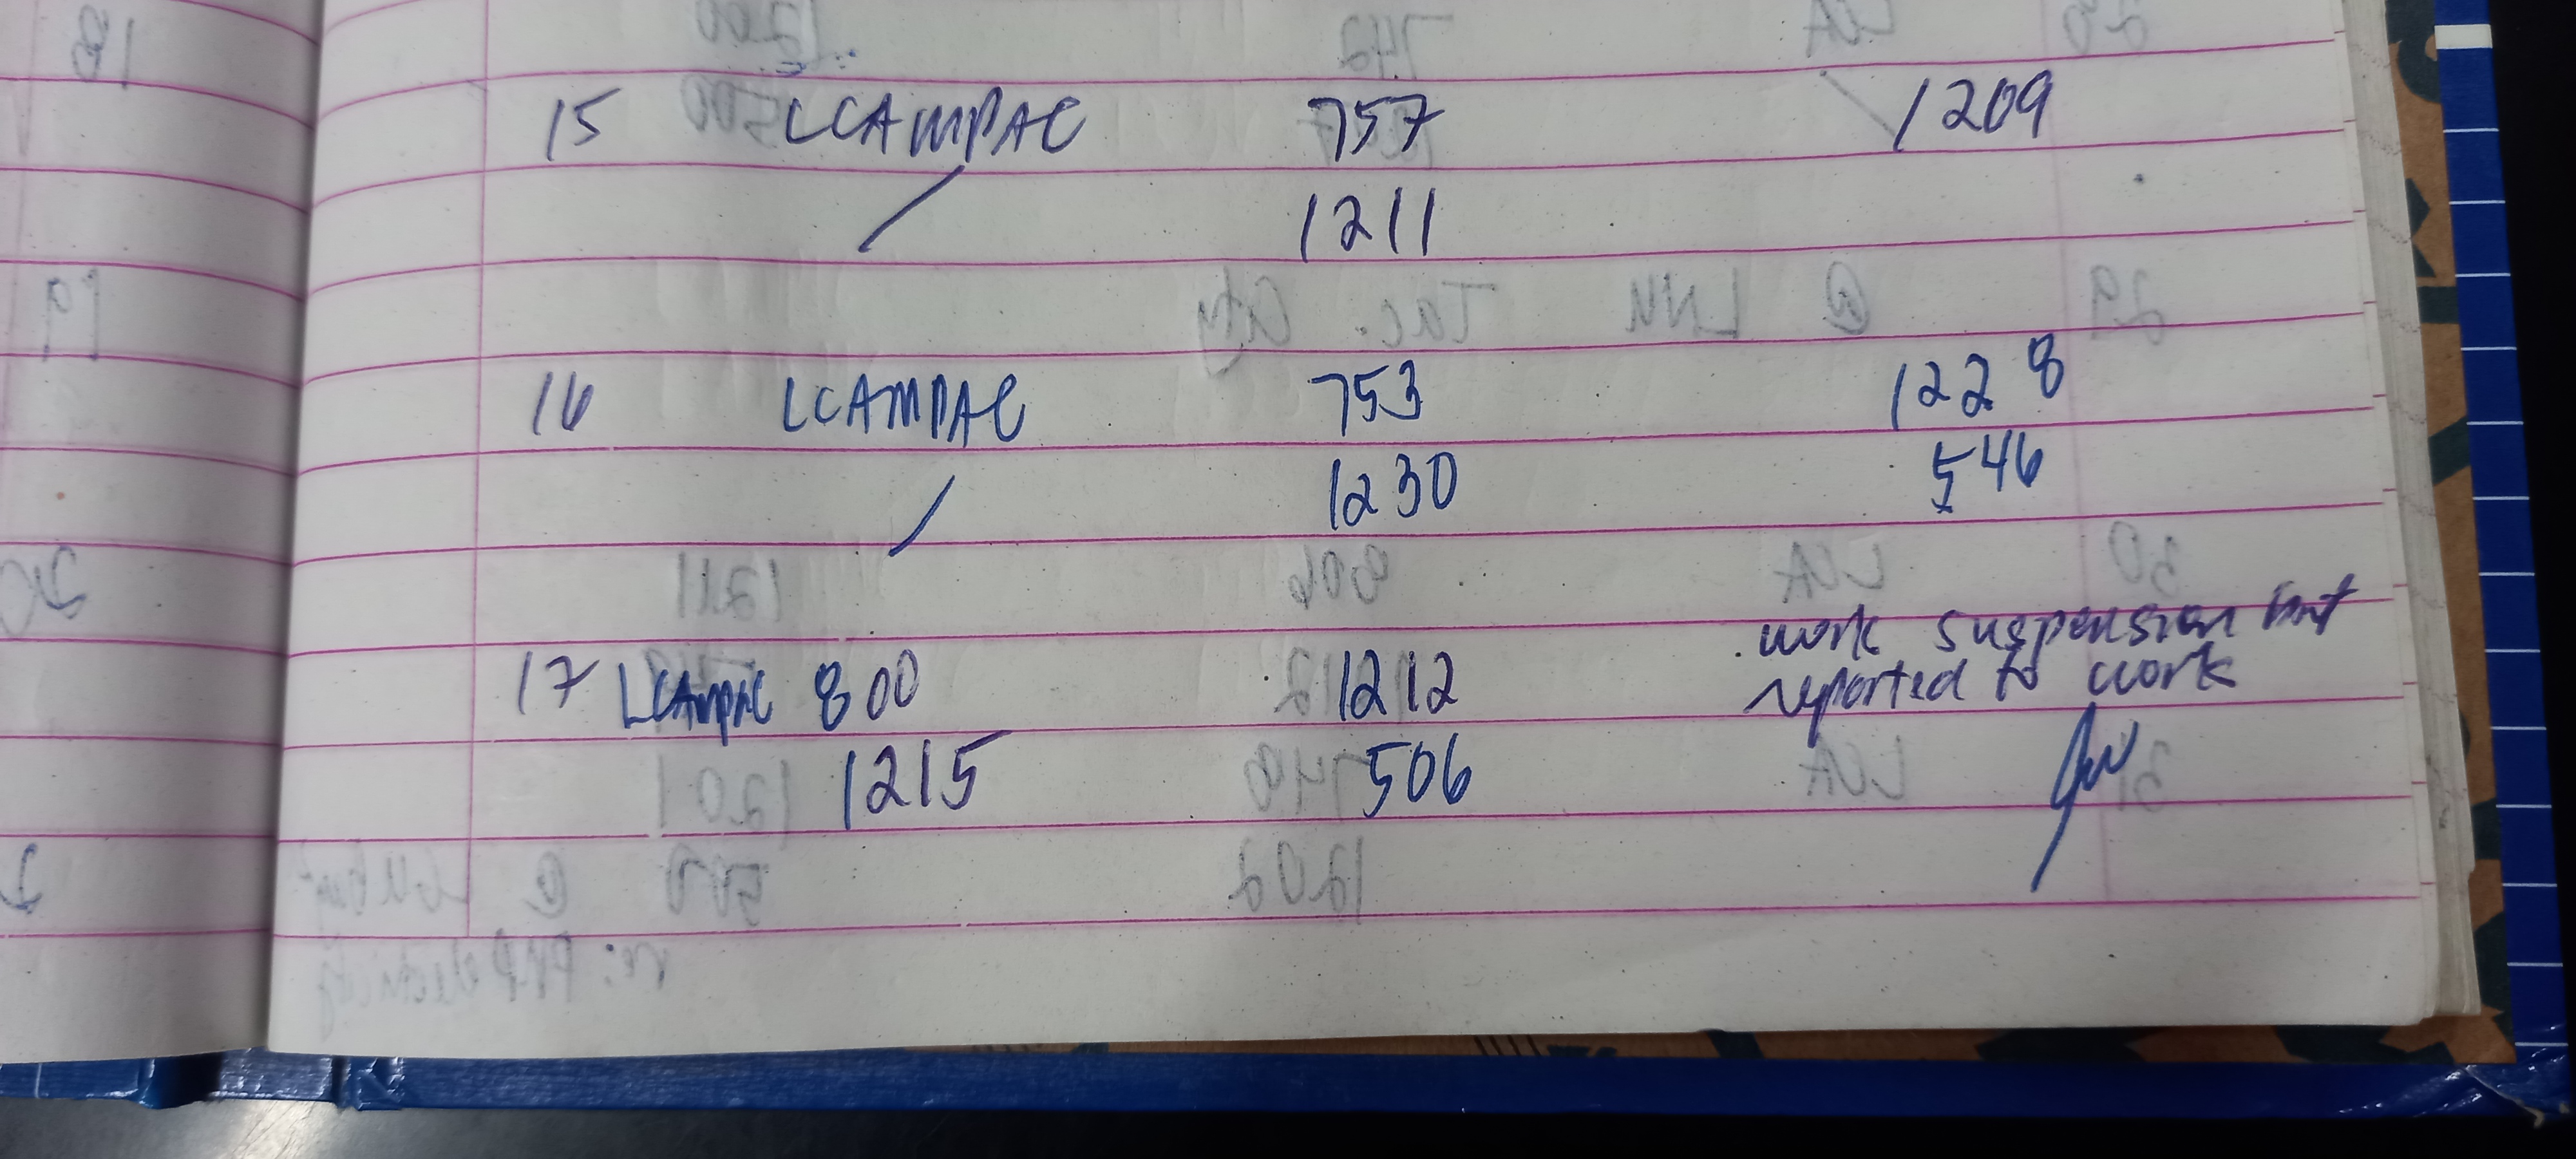 15 LCAMPAC 757 1209
/ 1211
16 LCAMPAC 753 1228
/ 1230 546
work suspension but
17 LCAMPAC 800 1212 reported to work
1215 506